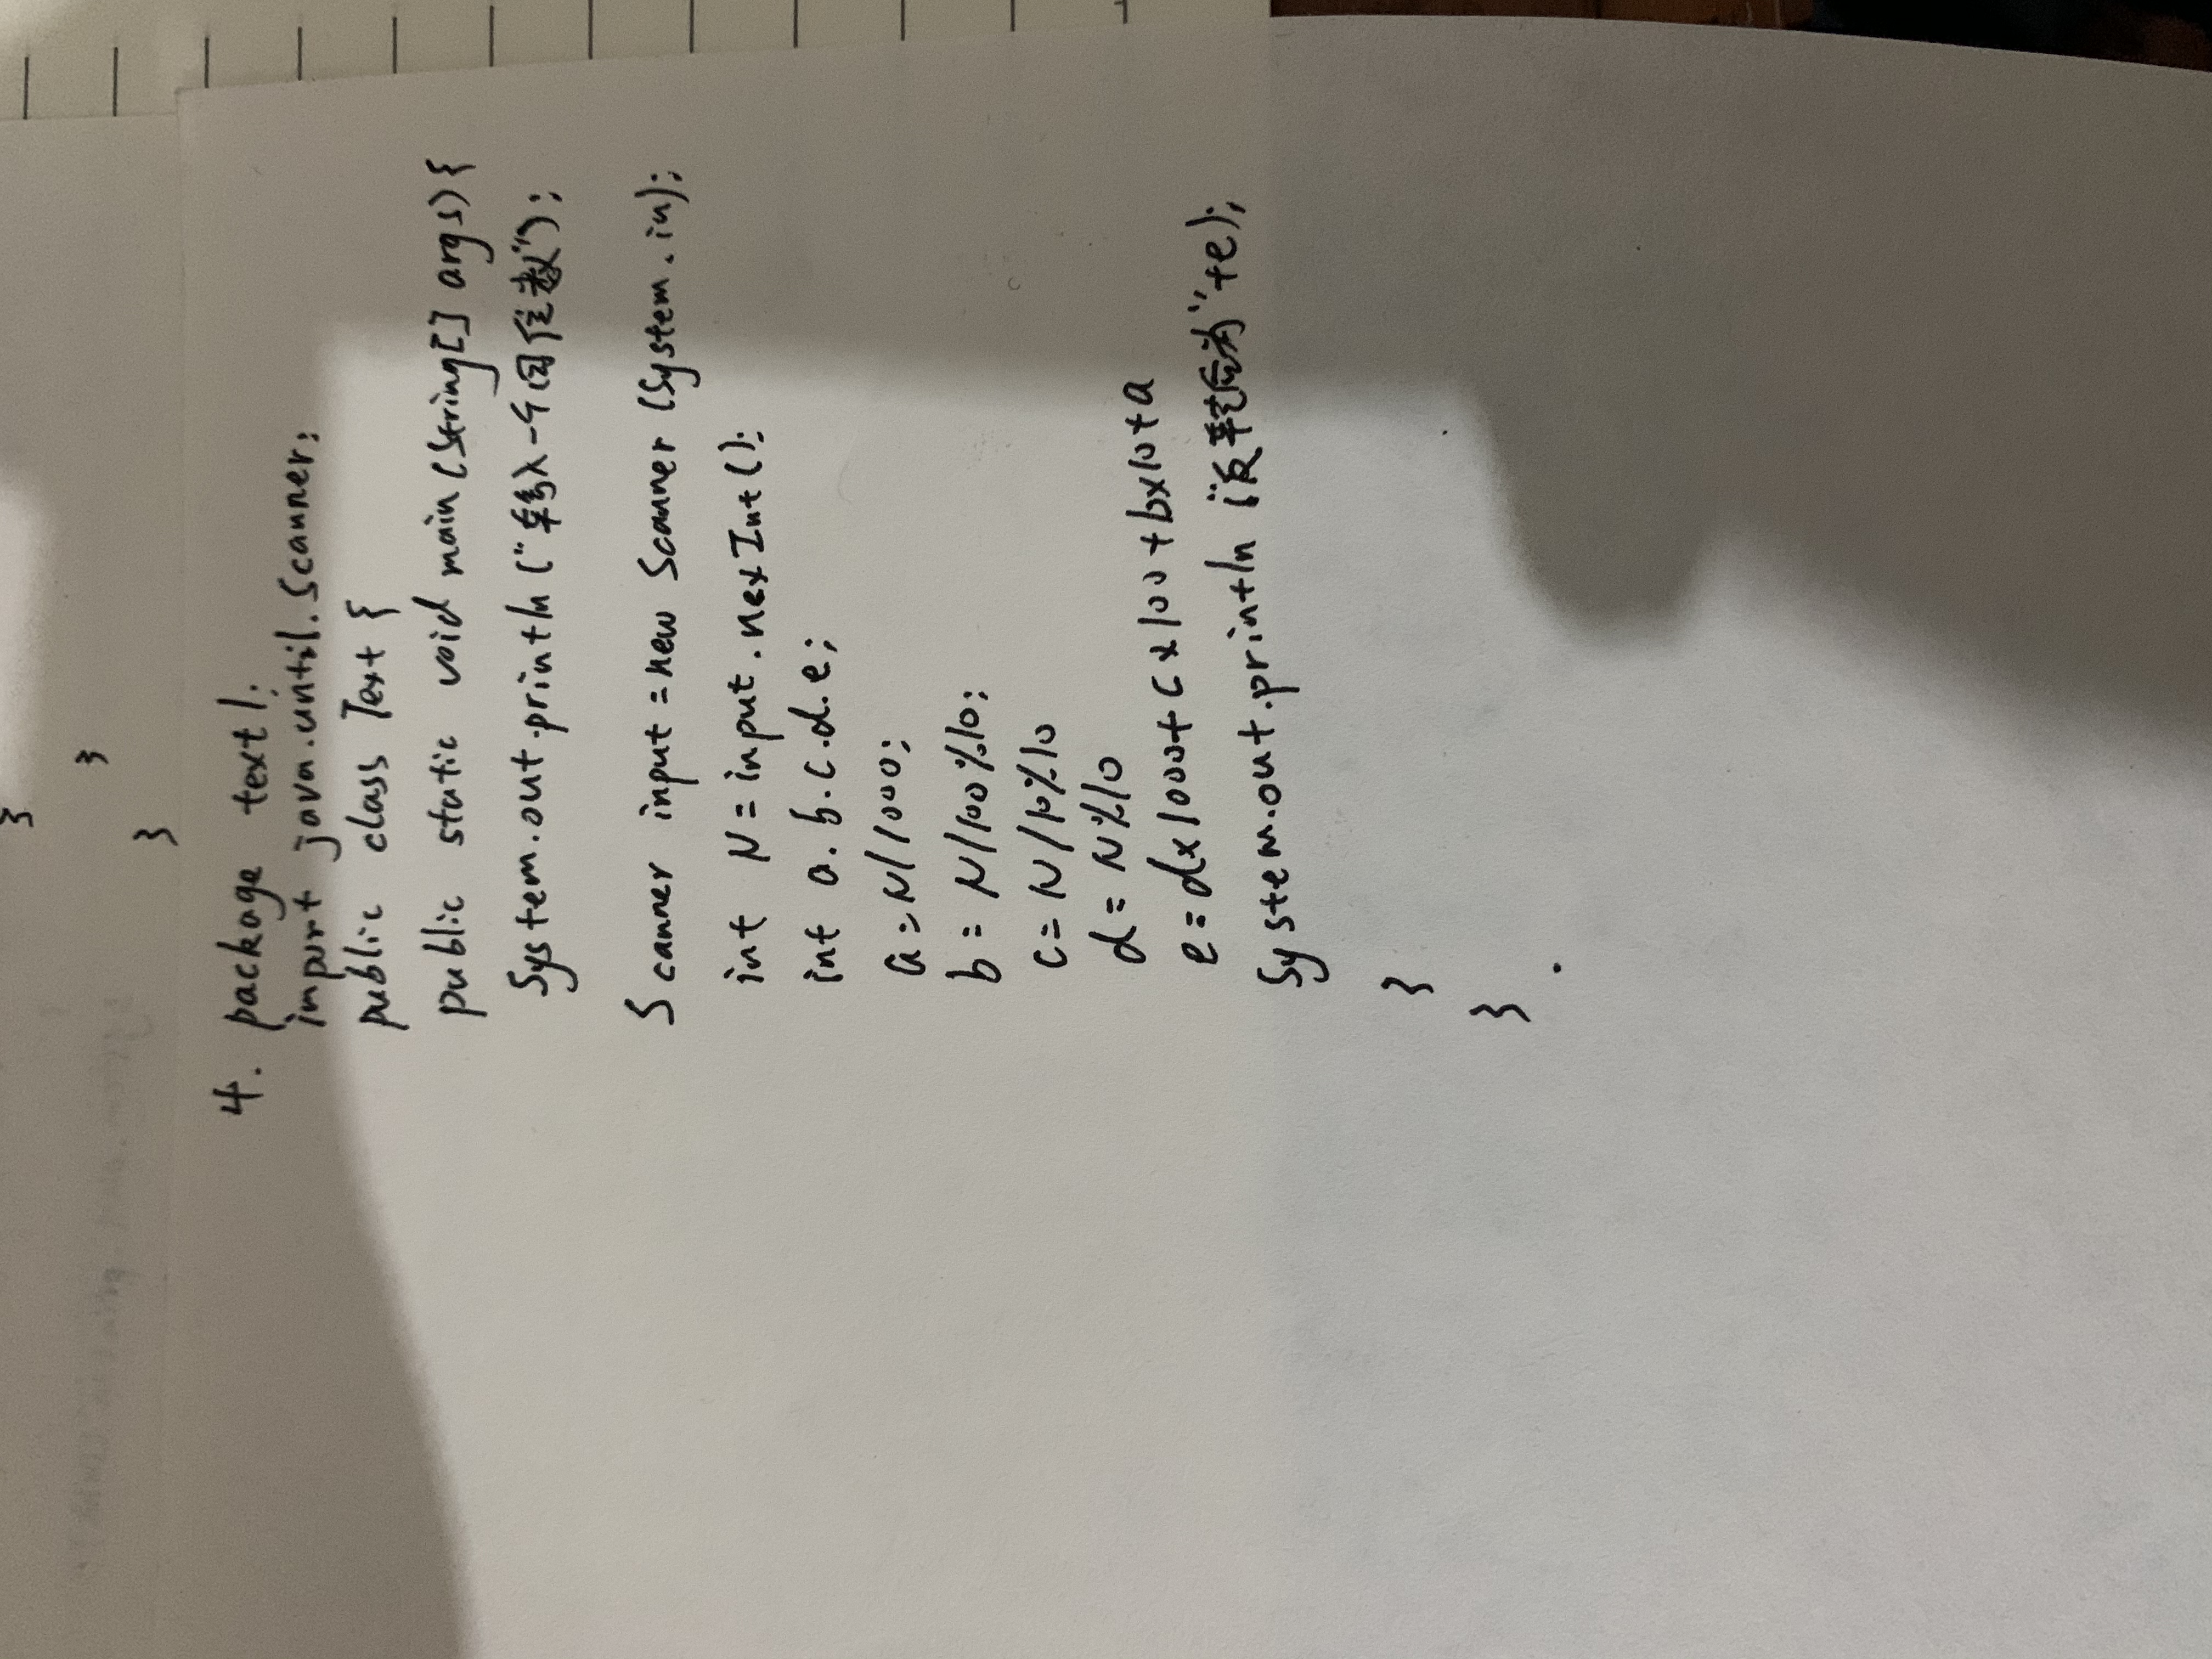 }
}
}
4. package text1;
inport java.until.Scanner;
public class Text {
public static void main(String[] args){
System.out.println("输入一个四位数");
Scanner input=new Scanner(System.in);
int N=input.nexInt();
int a.b.c.d.e;
a=N/1000;
b=N/100%10;
c=N/10%10
d=N%10
e=dx1000+cx100+bx10+a
System.out.println "反转后为"+e);
}
}